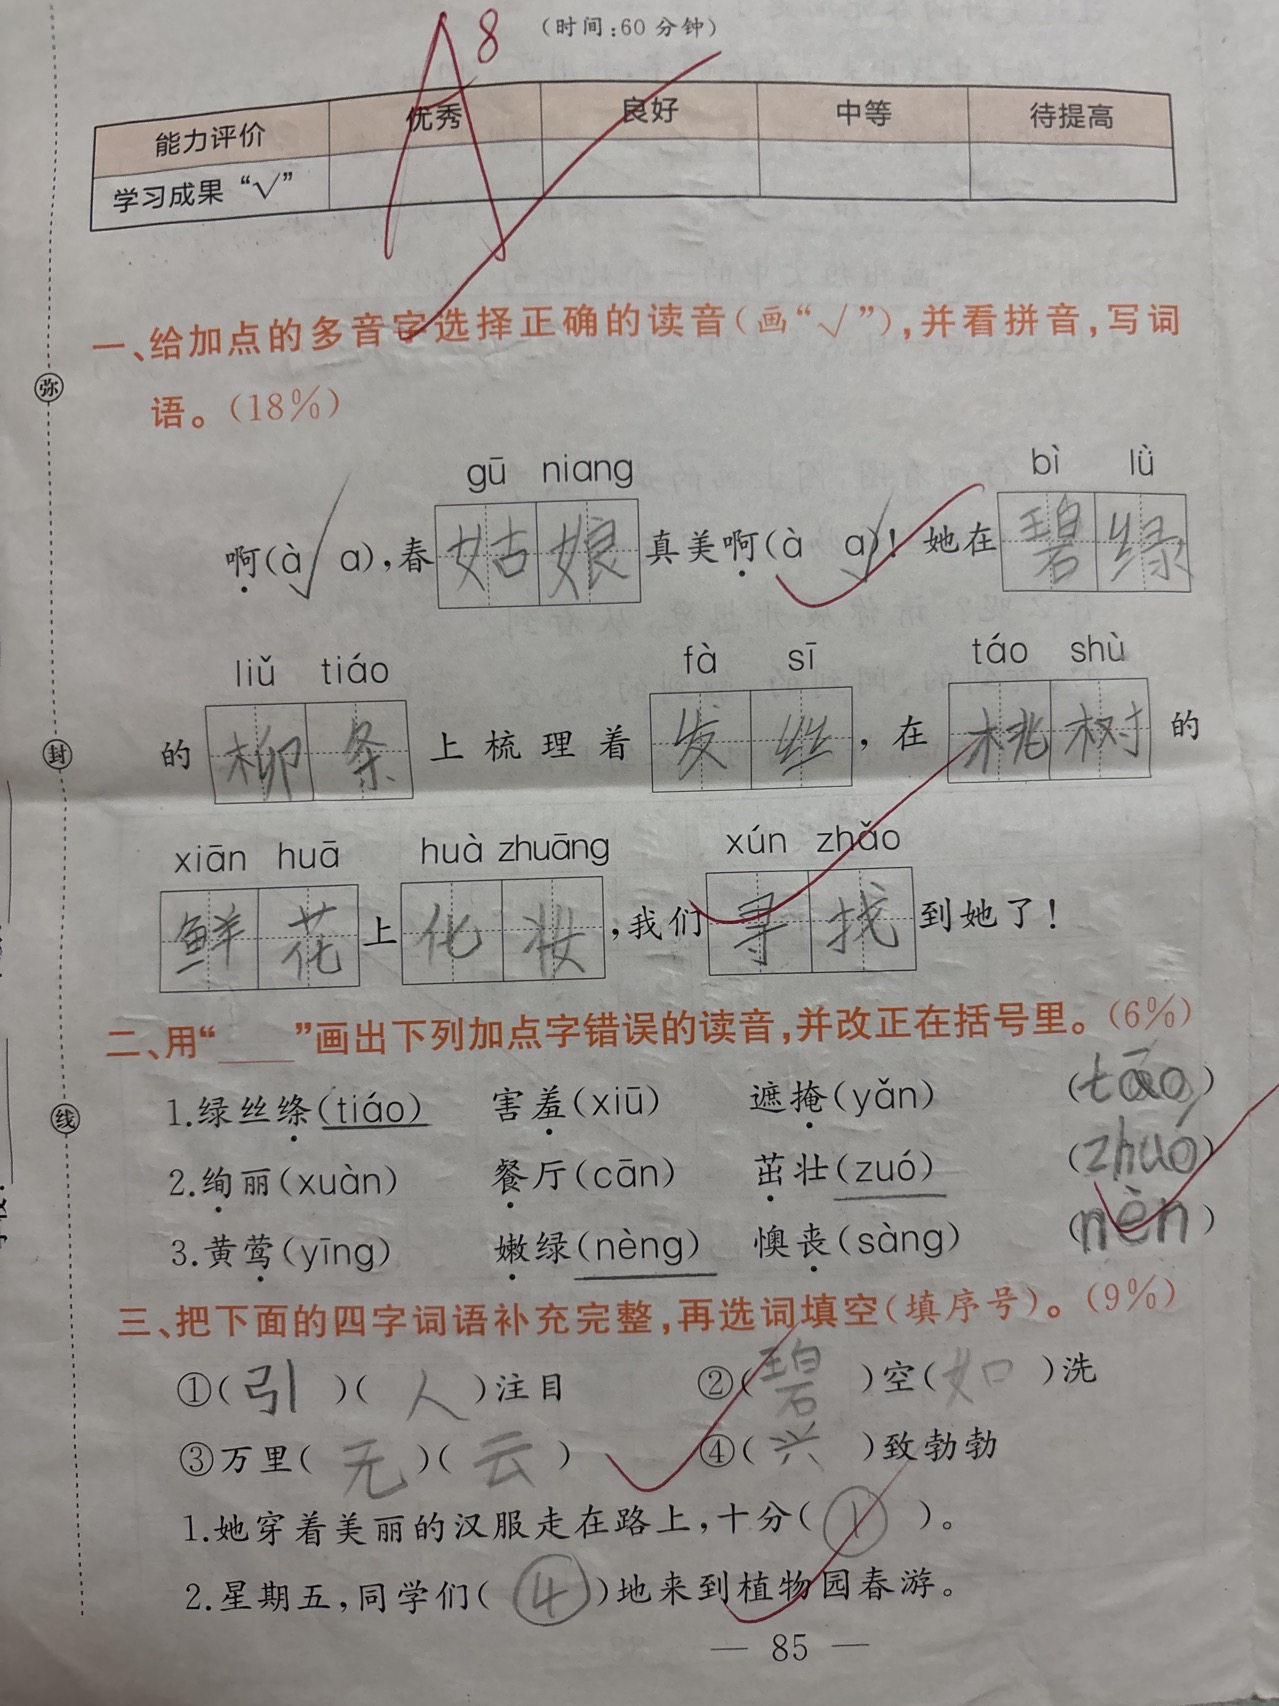 A 8
(时间:60分钟)
能力评价 优秀 良好 中等 待提高
学习成果“√”
一、给加点的多音字选择正确的读音(画“√”),并看拼音,写词
语。(18%)
gū niang bì lǜ
啊(à√ a),春姑娘真美啊(à a√)!她在碧绿
liǔ tiáo fà sī táo shù
的柳条上梳理着发丝,在桃树的
xiān huā huà zhuāng xún zhǎo
鲜花上化妆,我们寻找到她了!
二、用“___”画出下列加点字错误的读音,并改正在括号里。(6%)
1.绿丝绦(tiáo) 害羞(xiū) 遮掩(yǎn) (tāo)
2.绚丽(xuàn) 餐厅(cān) 茁壮(zuó) (zhuó)
3.黄莺(yīng) 嫩绿(nèng) 懊丧(sàng) (nèn)
三、把下面的四字词语补充完整,再选词填空(填序号)。(9%)
①(引)(人)注目 ②(碧)空(如)洗
③万里(无)(云) ④(兴)致勃勃
1.她穿着美丽的汉服走在路上,十分(①)。
2.星期五,同学们(④)地来到植物园春游。
— 85 —
弥
封
线